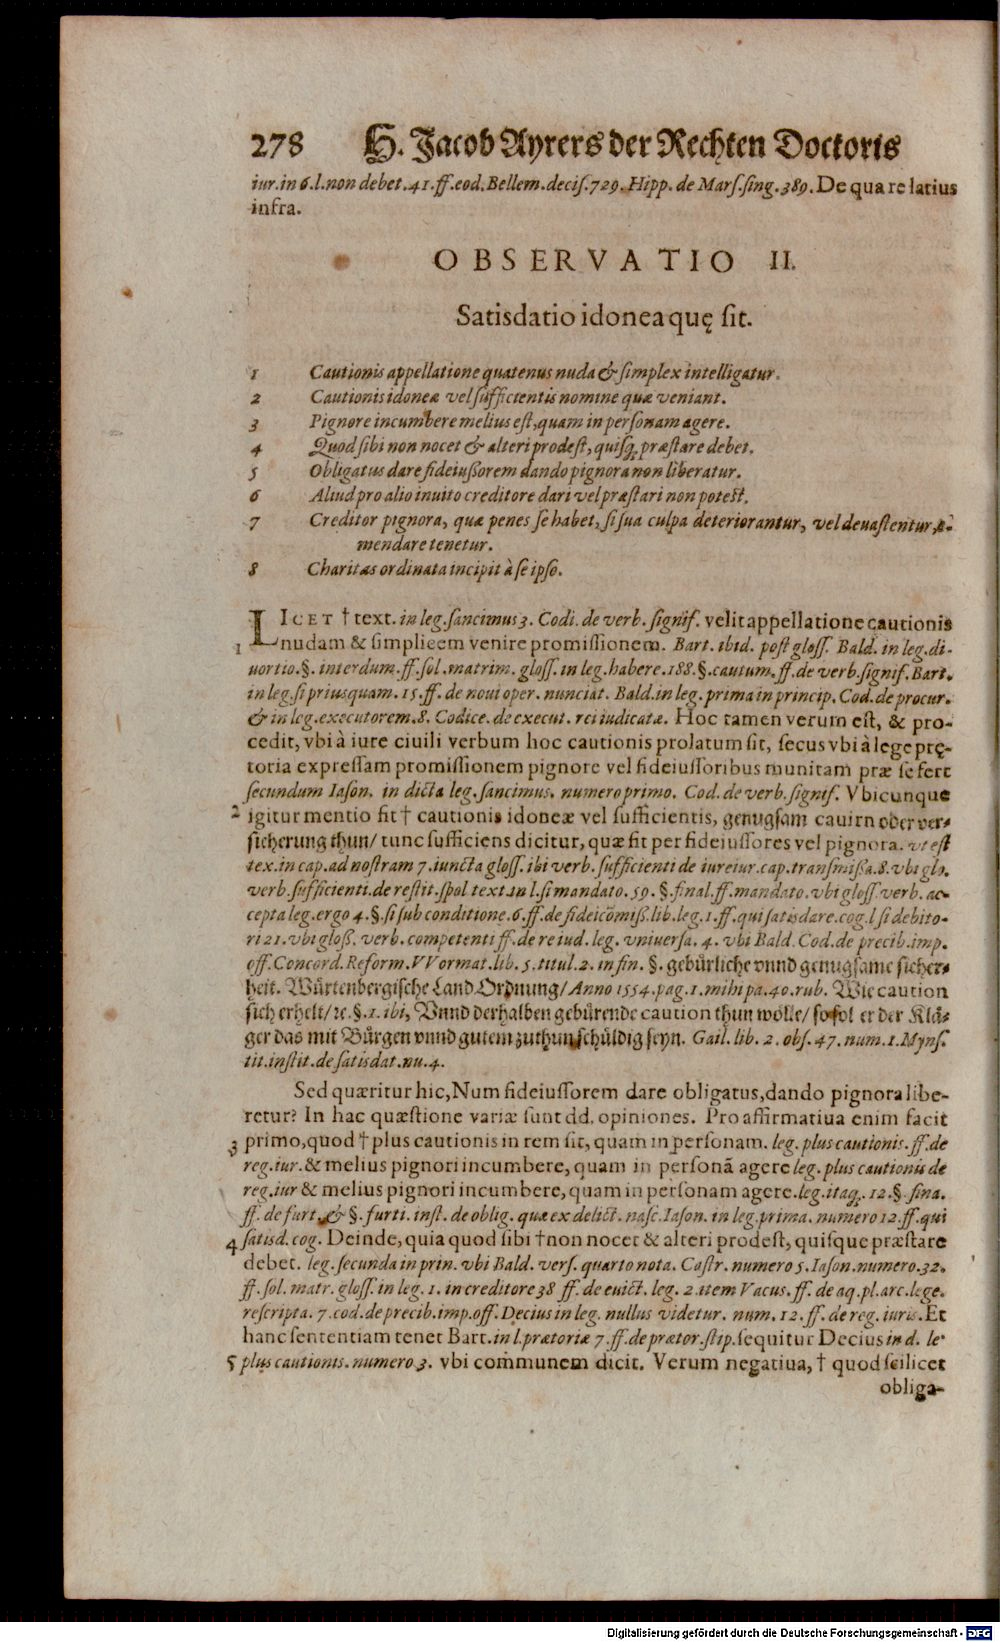 278 H. Jacob Ayrers der Rechten Doctoris
iur. in 6. l. non debet. 41. ff. eod. Bellem. decis. 729. Hipp. de Mars. sing. 389. De qua re latius
infra.
OBSERVATIO II.
Satisdatio idonea quę sit.
1 Cautionis appellatione quatenus nuda & simplex intelligatur.
2 Cautionis idoneæ vel sufficientis nomine quæ veniant.
3 Pignore incumbere melius est, quam in personam agere.
4 Quod sibi non nocet & alteri prodest, quisq; præstare debet.
5 Obligatus dare fideiussorem dando pignora non liberatur.
6 Aliud pro alio inuito creditore dari vel præstari non potest.
7 Creditor pignora, quæ penes se habet, si sua culpa deteriorantur, vel deuastentur,
mendare tenetur.
8 Charitas ordinata incipit à se ipso.
LICET † text. in leg. sancimus 3. Codi. de verb. signif. velit appellatione cautionis
1 nudam & simplicem venire promissionem. Bart. ibid. post gloss. Bald. in leg. di-
uortio. §. interdum. ff. sol. matrim. gloss. in leg. habere. 188. §. cautum. ff. de verb. signif. Bart.
in leg. si priusquam. 15. ff. de noui oper. nunciat. Bald. in leg. prima in princip. Cod. de procur.
& in leg. executorem. 8. Codice. de execut. rei iudicatæ. Hoc tamen verum est, & pro-
cedit, vbi à iure ciuili verbum hoc cautionis prolatum sit, secus vbi à lege prę-
toria expressam promissionem pignore vel fideiussoribus munitam præ se fert
secundum Iason. in dicta leg. sancimus. numero primo. Cod. de verb. signif. Vbicunque
2 igitur mentio fit † cautionis idoneæ vel sufficientis, genugsam cauirn oder ver-
sicherung thun/ tunc sufficiens dicitur, quæ fit per fideiussores vel pignora. vt est
tex. in cap. ad nostram 7. iuncta gloss. ibi verb. sufficienti de iureiur. cap. transmissa. 8. vbi glo.
verb. sufficienti. de restit. spol text. in l. si mandato. 59. §. final. ff. mandato. vbi gloss. verb. ac-
cepta leg. ergo 4. §. si sub conditione. 6. ff. de fideicōmiss. lib. leg. 1. ff. qui satisdare. cog. l si debito-
ri 21. vbi gloss. verb. competenti ff. de re iud. leg. vniuersa. 4. vbi Bald. Cod. de precib. imp.
off. Concord. Reform. VVormat. lib. 5. titul. 2. in fin. §. gebürliche vnnd genugsame sicher-
heit. Würtenbergische Land Ordnung/ Anno 1554. pag. 1. mihi pa. 40. rub. Wie caution
sich erhelt/ ꝛc. §. 1. ibi, Vnnd derhalben gebürende caution thun wölle/ so sol er der Klä-
ger das mit Bürgen vnnd gutem zuthun schüldig seyn. Gail. lib. 2. obs. 47. num. 1. Myns.
tit. instit. de satisdat. nu. 4.
Sed quæritur hic, Num fideiussorem dare obligatus, dando pignora libe-
retur? In hac quæstione variæ sunt dd. opiniones. Pro affirmatiua enim facit
3 primo, quod † plus cautionis in rem sit, quam in personam. leg. plus cautionis. ff. de
reg. iur. & melius pignori incumbere, quam in personā agere leg. plus cautionis de
reg. iur & melius pignori incumbere, quam in personam agere. leg. itaq; 12. §. fina.
ff. de furt. & §. furti. inst. de oblig. quæ ex delict. nasc. Iason. in leg. prima. numero 12. ff. qui
4 satisd. cog. Deinde, quia quod sibi † non nocet & alteri prodest, quisque præstare
debet. leg. secunda in prin. vbi Bald. vers. quarto nota. Castr. numero 5. Iason. numero. 32.
ff. sol. matr. gloss. in leg. 1. in creditore 38 ff. de euict. leg. 2. item Vacus. ff. de aq. pl. arc. lege.
rescripta. 7. cod. de precib. imp. off. Decius in leg. nullus videtur. num. 12. ff. de reg. iuris. Et
hanc sententiam tenet Bart. in l. prætoriæ 7. ff. de prætor. stip. sequitur Decius in d. le.
5 plus cautionis. numero 3. vbi communem dicit. Verum negatiua, † quod scilicet
obliga-
Digitalisierung gefördert durch die Deutsche Forschungsgemeinschaft - DFG